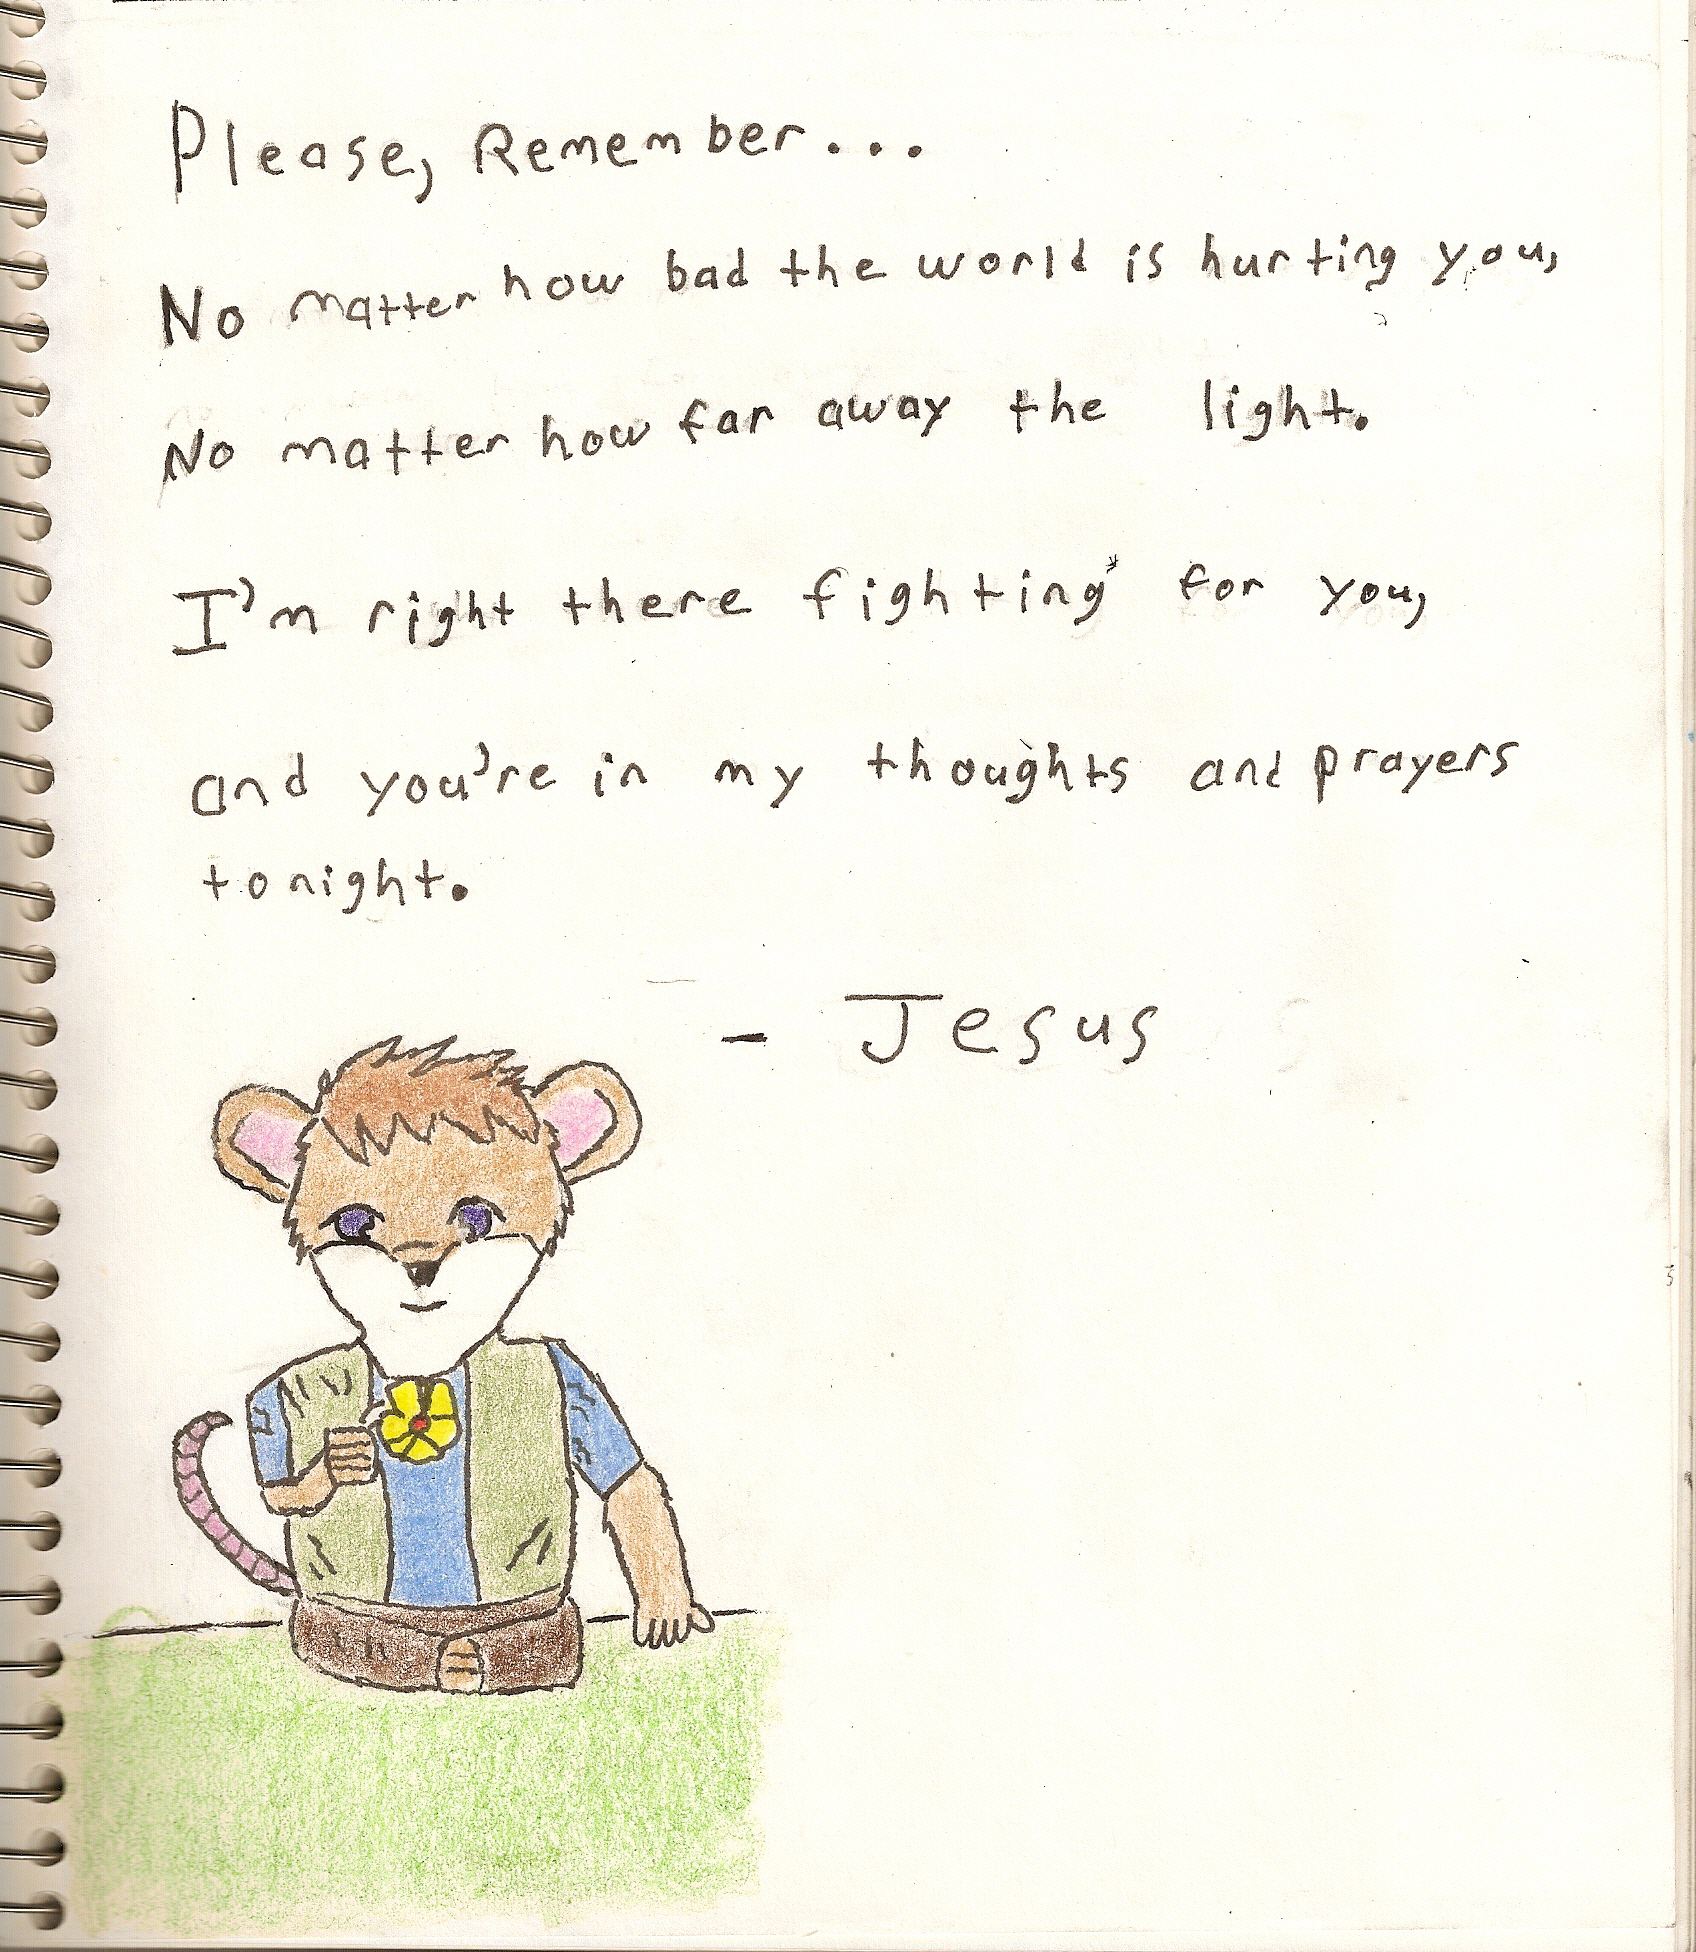 Please, Remember...
No matter how bad the world is hurting you,
No matter how far away the light.
I'm right there fighting for you,
and you're in my thoughts and prayers
tonight.
- Jesus